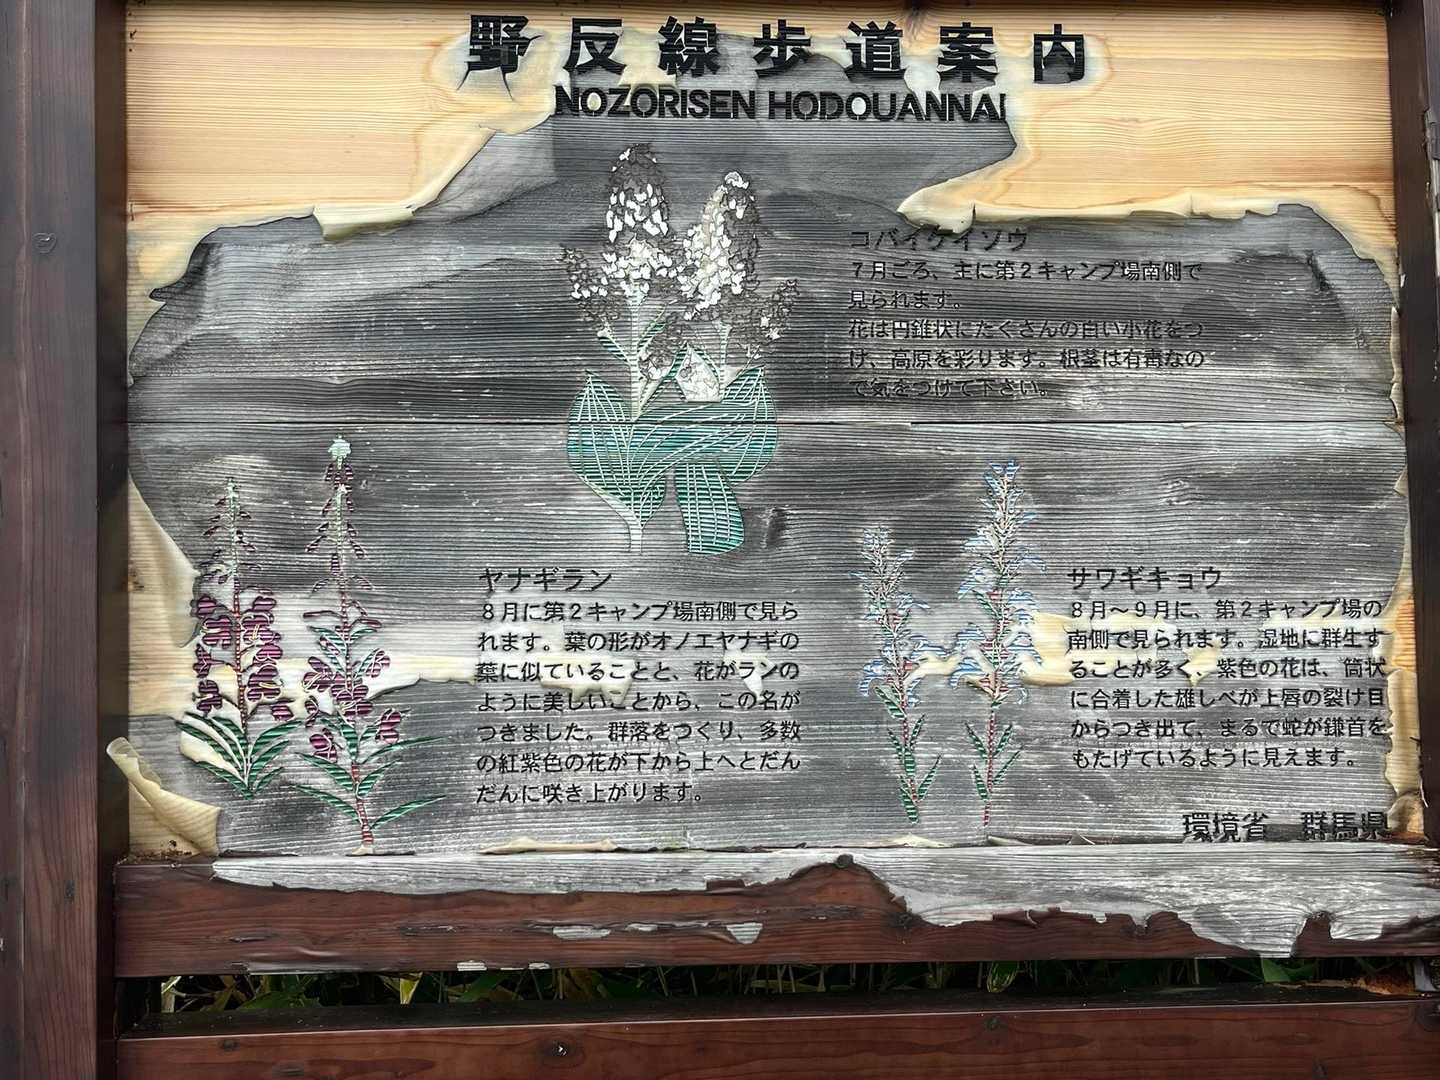 野反線歩道案内
NOZORISEN HODOUANNAI
コバイケイソウ
7月ごろ、主に第2キャンプ場南側で
見られます。
花は円錐状にたくさんの白い小花をつ
け、高原を彩ります。根茎は有毒なの
で気をつけて下さい。
ヤナギラン
8月に第2キャンプ場南側で見ら
れます。葉の形がオノエヤナギの
葉に似ていることと、花がランの
ように美しいことから、この名が
つきました。群落をつくり、多数
の紅紫色の花が下から上へとだん
だんに咲き上がります。
サワギキョウ
8月〜9月に、第2キャンプ場の
南側で見られます。湿地に群生す
ることが多く、紫色の花は、筒状
に合着した雄しべが上唇の裂け目
からつき出て、まるで蛇が鎌首を
もたげているように見えます。
環境省 群馬県